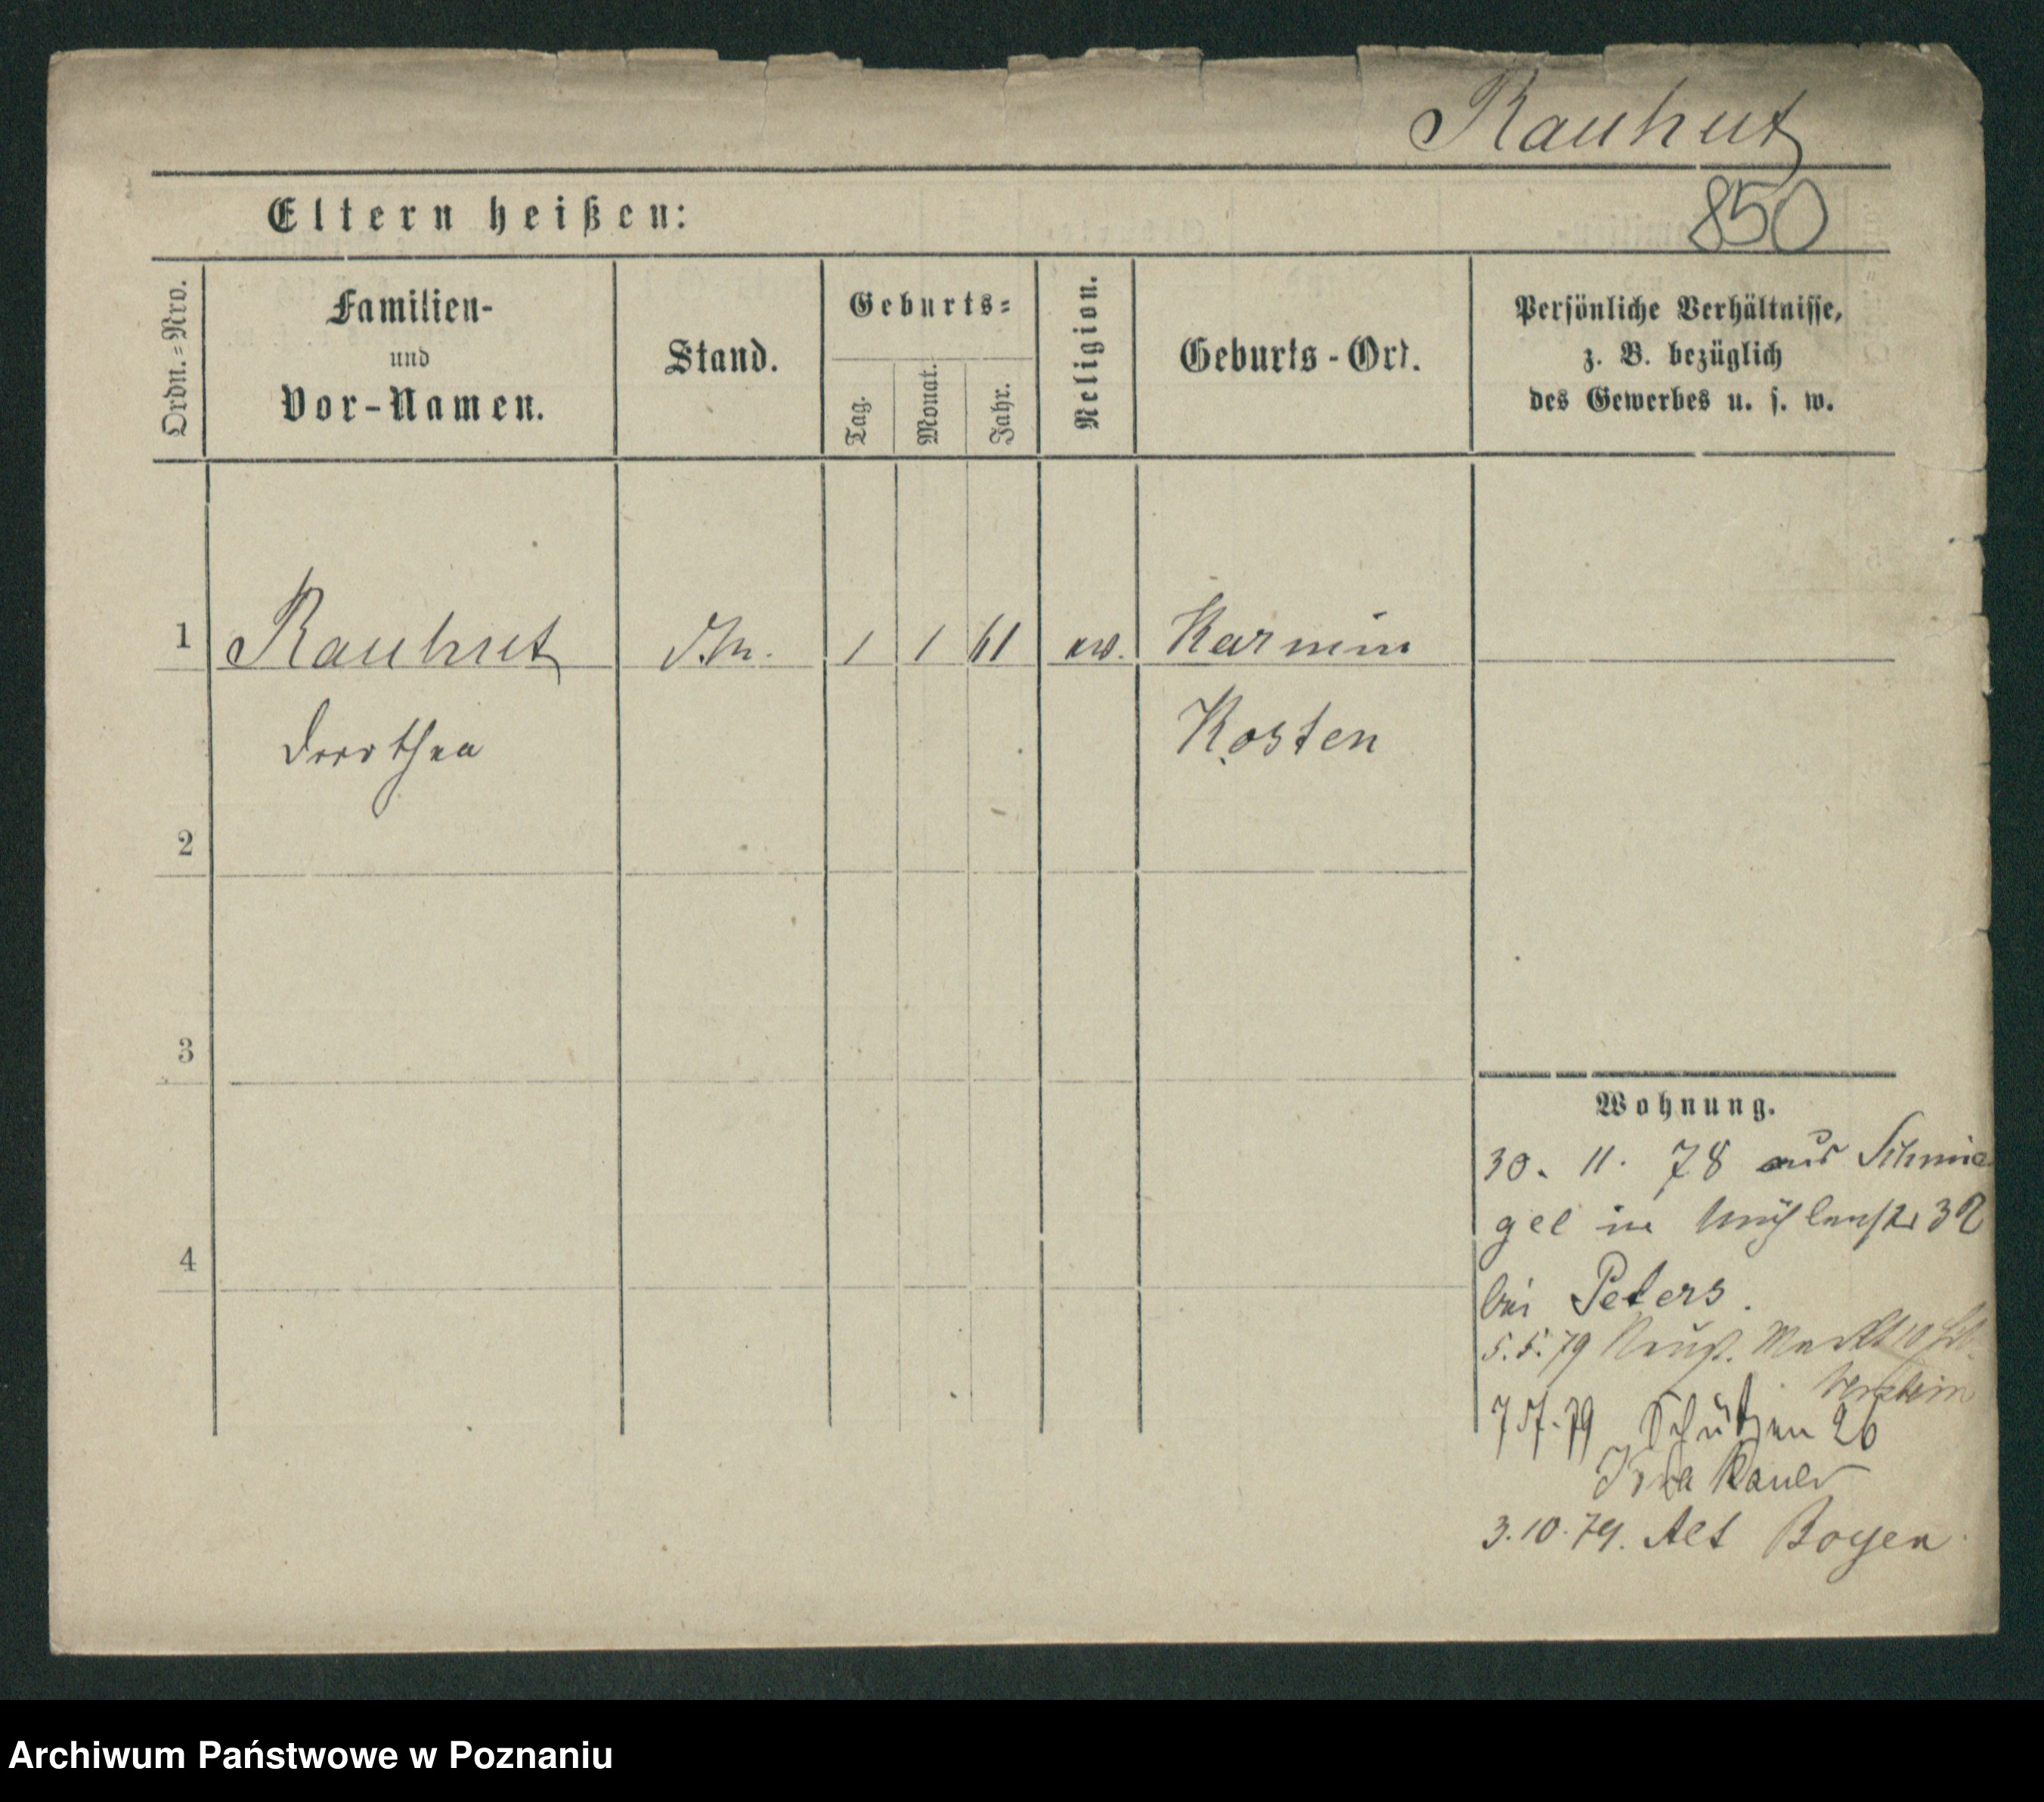 Rauhut
850
Eltern heißen:
Ordn.=Nro.
Familien-
und
Vor-Namen.
Stand.
Geburts=
Tag.
Monat.
Jahr.
Religion.
Geburts-Ort.
Persönliche Verhältnisse,
z. B. bezüglich
des Gewerbes u. s. w.
1
Rauhut
1 1 61
ev.
Karmin
Dorothea
Kosten
2
3
4
Wohnung.
30. 11. 78 aus Schmie
gel in Mühlenstr 32
bei Peters.
5.5.79 Neust. Markt 10
Schützen 26
3.10.79. Alt Boyen
Archiwum Państwowe w Poznaniu